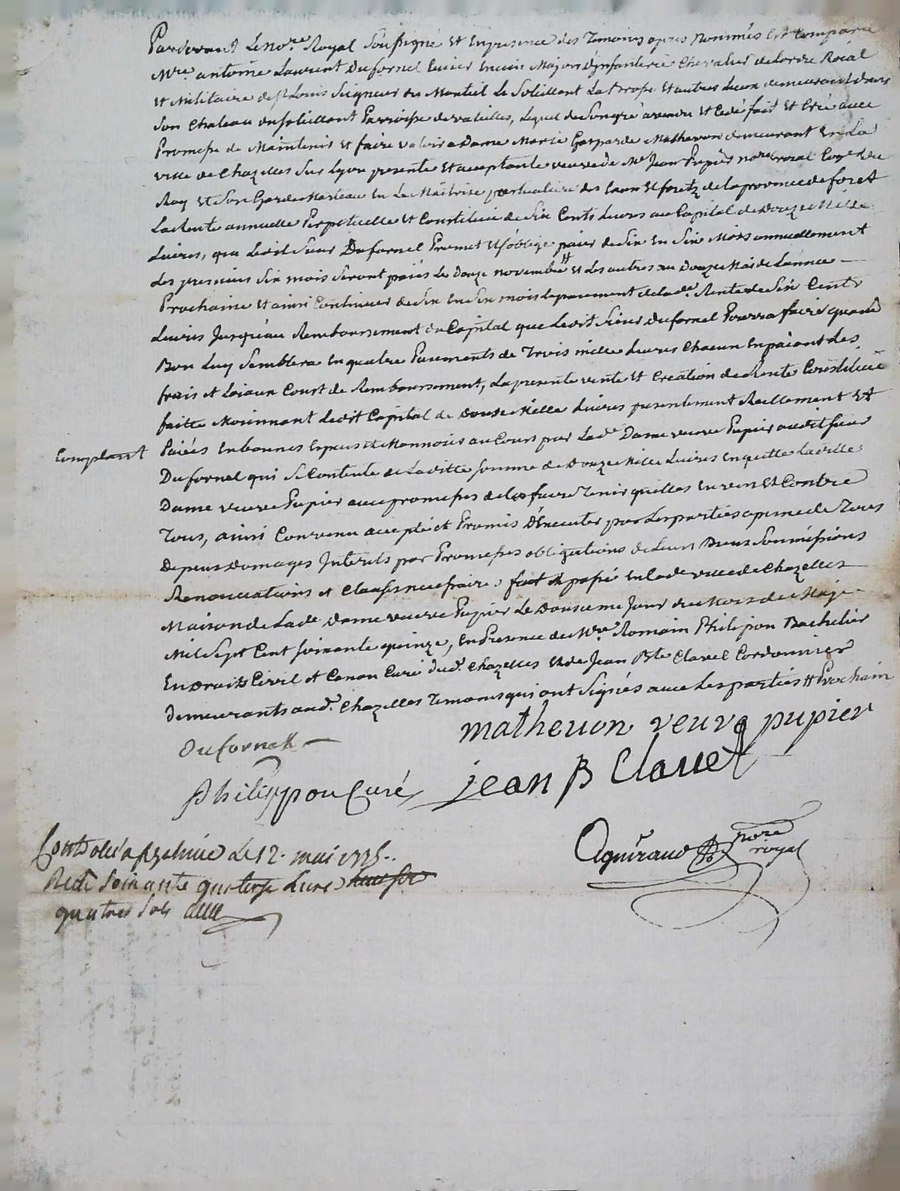 Pardevant Le no.re Royal Soussigné et En presence des Temoins apres nommés est Comparu
M.re antoine Laurent Dufornel Ecuier ancien Major d'Infanterie Chevalier de Lordre Roial
et Militaire de S.t Louis Seigneur du Monteil Le Soleillant La et autres Lieux demeurant dans
Son Chateau du Soleillant Parroisse de valeilles, Lequel de Son gré a vendu et Cedé fait et Créé avec
Promesse de Maintenir et faire valoir a Dame Marie Gasparde Mathevon demeurant En La
ville de Chazelles Sur Lyon presente et acceptante veuve de M.e Jean Pupier no.re roial du
Roy et Son Garde Marteau En La Maitrise particuliere des Eaux et foretz de la province de forest
La Rente annuelle Perpetuelle et Constituée de Six Cents Livres au Capital de Douze Mille
Livres, que Ledit Sieur Dufornel Promet et S'oblige paier de Six En Six Mois annuellement
Les premiers Six mois Seront paiés Le Douze novembre # et Les autres au Douze Mai de Lannée
Prochaine et ainsi Continuer de Six En Six mois le paiement de la d.e Rente de Six Cents
Livres Jusqu'au Remboursement du Capital que Ledit Sieur Dufornel Pourra faire quand
Bon Luy Semblera En quatre Paiements de Trois mille Livres Chacun En paiant Les
frais et Loiaux Couts de Remboursement, La presente vente et Creation de Rente Constituée
faitte Moiennant Ledit Capital de Douze Mille Livres presentement Reellement et
Comptant Paiées En bonnes Especes et Monnoies au Cours par Lad.e Dame veuve Pupier audit Sieur
Dufornel qui Se Contente de Laditte Somme de Douze Mille Livres En quitte Laditte
Dame veuve Pupier avec promesses de La faire Tenir quitte Envers et Contre
Tous, ainsi Convenu accepté et Promis D'Executer par Les parties a peine de Tous
Depens Domages Interets par Promesses obligations de Leurs Biens Soumissions
Renonciations et Clauses necessaires fait et passé En Lad.e ville de Chazelles
Maison de Lad.e Dame veuve Pupier Le Douzieme Jour du Mois de May
Mil Sept Cent Soixante quinze, En Presence de M.re Romain Philipon Bachelier
En Droits Civil et Canon Curé dud. Chazelles et de Jean B.te Clavel Cordonnier
Demeurants aud. Chazelles Temoins qui ont Signés avec Les parties # Prochain
Dufornel
mathevon veuve pupier
Philippon Curé
jean B Clavel
Aguiraud no.re royal
Contrôlé a Le 12. mai 1775.
Reçu Soixante quatorze Livre
quatre Sols